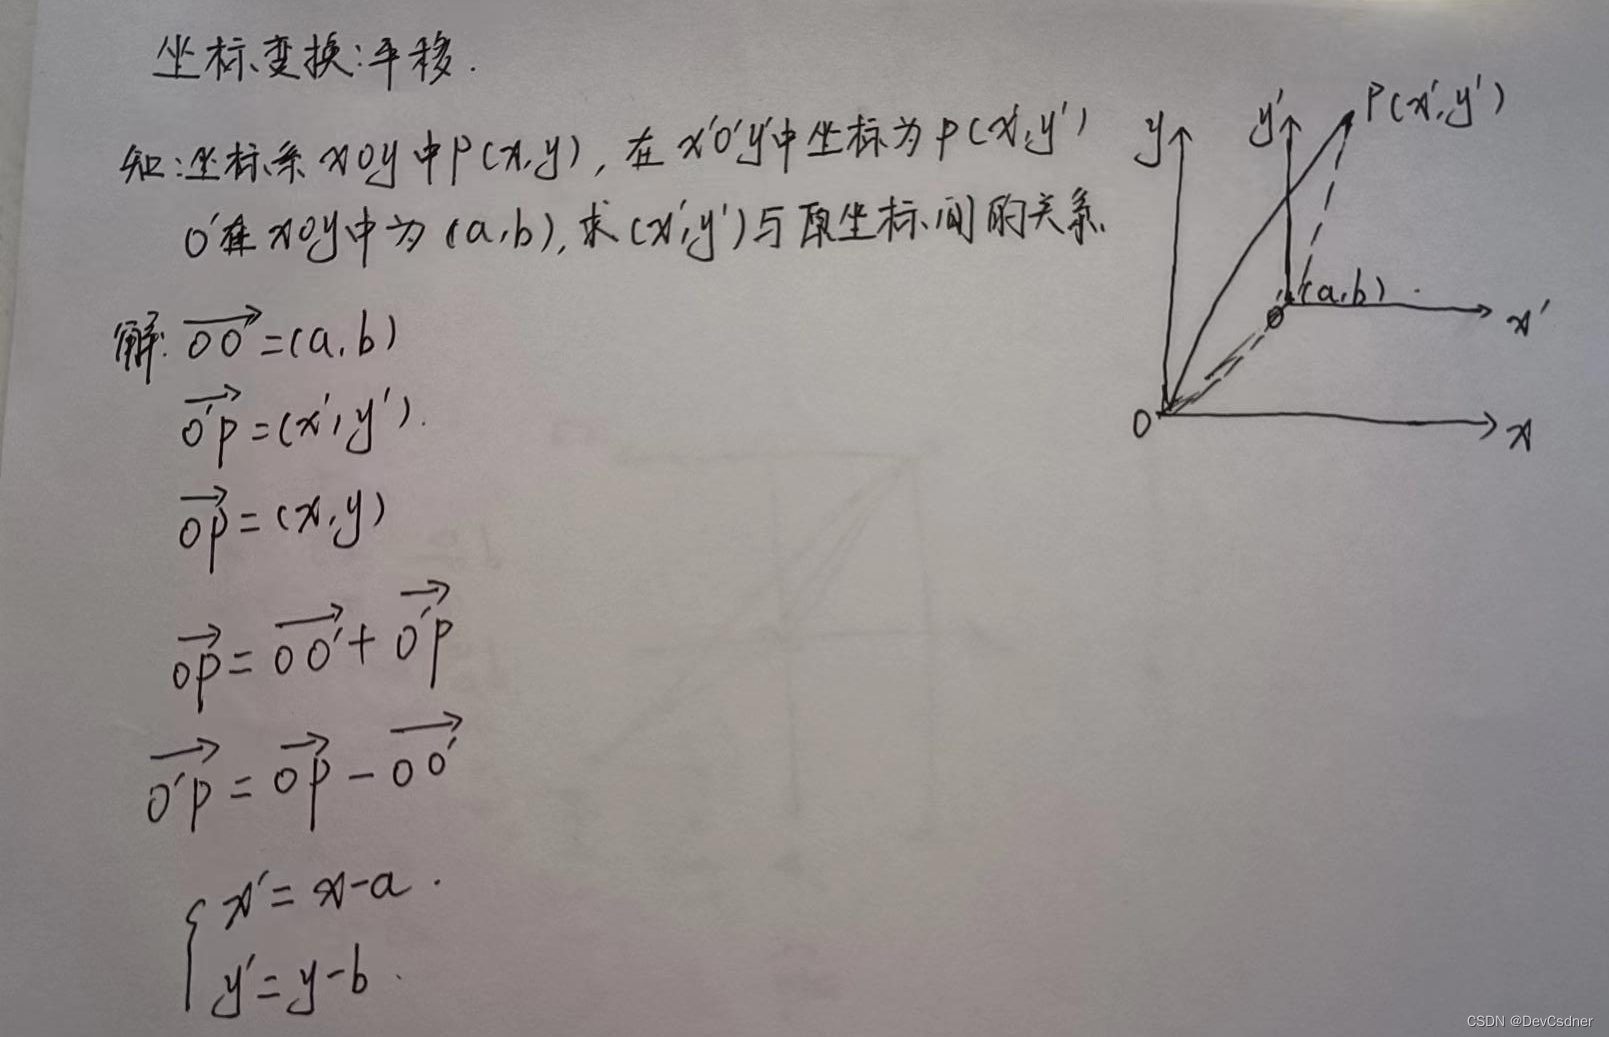 坐标变换:平移.
知:坐标系xOy中P(x,y),在x'O'y'中坐标为P(x',y')
O'在xOy中为(a,b),求(x',y')与原坐标间的关系.
解:OO'=(a,b)
O'P=(x',y').
OP=(x,y)
OP=OO'+O'P
O'P=OP-OO'
x'=x-a.
y'=y-b.
y
y'
P(x',y')
(a,b).
O'
x'
O
x
CSDN @DevCsdner